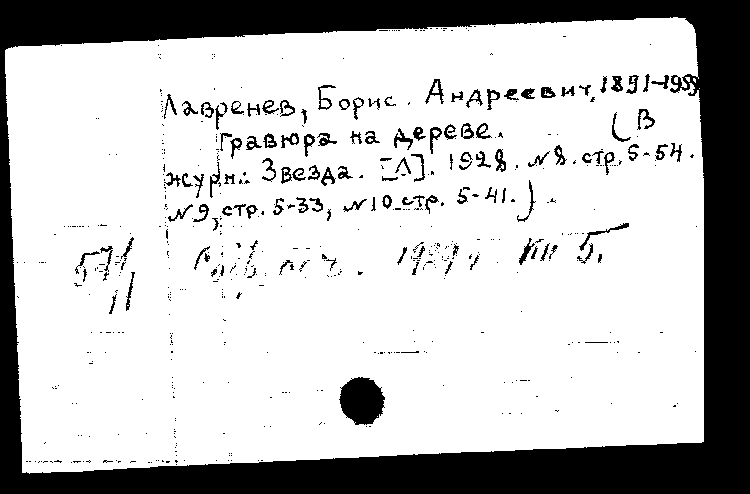 Лавренев, Борис. Андреевич, 1891-1959
Гравюра на дереве. (В
журн.: Звезда. [Л]. 1928. №8. стр. 5-54.
№9, стр. 5-33, №10 стр. 5-41.)
1929 г кн 5.